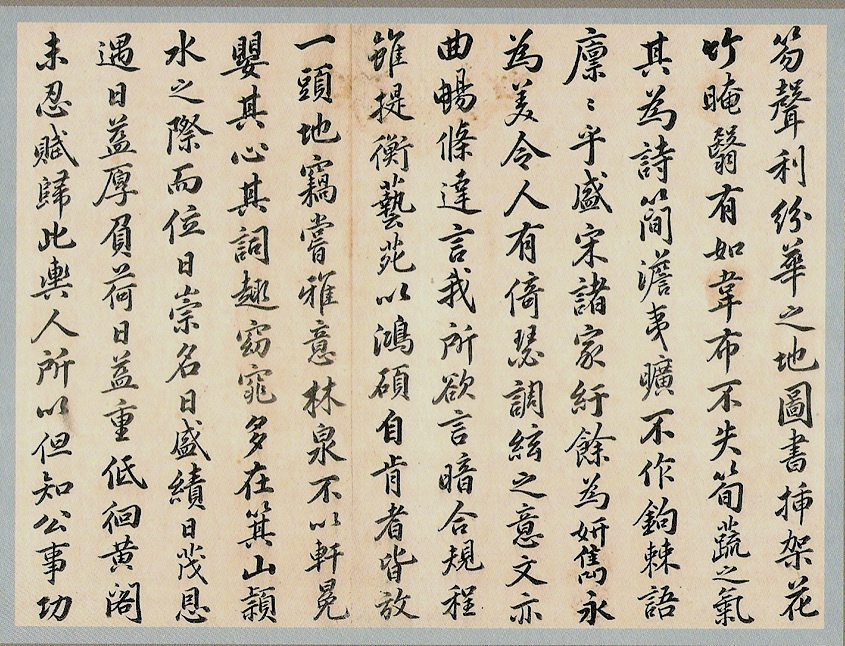 笏聲利紛華之地圖書插架花
竹晻翳有如韋布不失筍蔬之氣
其為詩簡澹夷曠不作鉤棘語
廩〻乎盛宋諸家紆餘為妍雋永
為美令人有倚瑟調絃之意文亦
曲暢條達言我所欲言暗合規程
雖提衡藝苑以鴻碩自肯者皆放
一頭地竊嘗雅意林泉不以軒冕
嬰其心其詞趣窈窕多在箕山潁
水之際而位日崇名日盛績日茂恩
遇日益厚負荷日益重低徊黃閣
未忍賦歸此輿人所以但知公事功